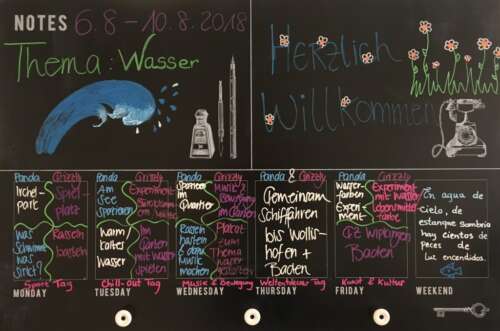 NOTES 6.8 – 10.8.2018
Thema: Wasser
Herzlich
Willkommen
Panda Grizzly
Irchel-
park
Spiel-
platz
was
Schwimmt
was
sinkt?
Basteln
Sport Tag
MONDAY
Panda Grizzly
Am
See
Spazieren
Experiment
kann
kaltes
wasser
Im
Garten
mit Wasser
spielen
Chill-out Tag
TUESDAY
Panda Grizzly
Spazieren
im
Quartier
Musik &
Bewegung
im Garten
Baden
basteln
& dann
machen
Plakat
zum
Thema
Wasser
Musik & Bewegung
WEDNESDAY
Panda & Grizzly
Gemeinsam
Schifffahren
bis Wollis-
hofen +
Baden
Weltentdecker Tag
THURSDAY
Panda Grizzly
Wasser-
farben
Experi-
ment
Experiment
mit Wasser
lebensmittel-
farbe
GZ Wipkingen
Baden
Kunst & Kultur
FRIDAY
En agua de
Cielo, de
estanque sombrio
hay cientos de
peces de
luz encendidos.
WEEKEND